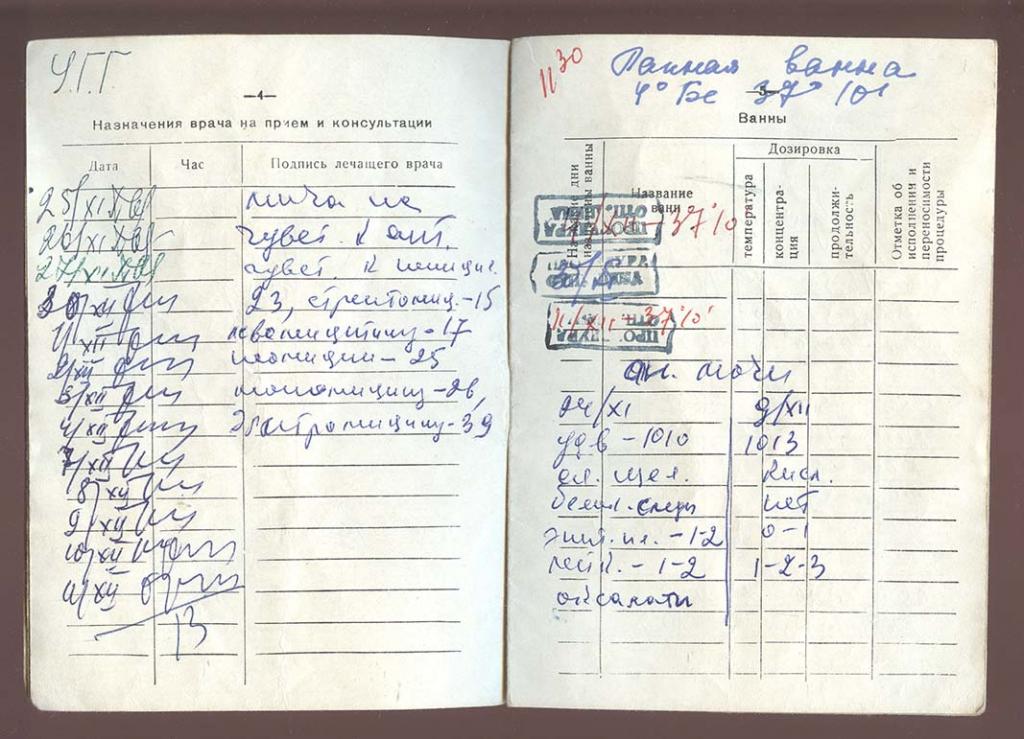 У.Г.Г.
—4—
Назначения врача на прием и консультации
Дата Час Подпись лечащего врача
25/XI
26/XI чувст. к ант.
27/XI чувст. к пеницил.
30/XI 23, стрептомиц.-15
1/XII левомицитину-17
2/XII неомицин-25
3/XII мономицину-26,
4/XII эритромицину-39
7/XII
8/XII
9/XII
10/XII
11/XII
13
11 30 Рапная ванна
4° Бе 37° 10'
—5—
Ванны
Назначенные дни Название ванны Дозировка
температура концентрация продолжительность Отметка об исполнении и переносимости процедуры
XII - 37° 10
11/XII - 37° 10'
ан. мочи
24/XI 9/XII
уд в - 1010 1013
сл. щел. кисл.
белк. следы нет
эпит. пл. - 1-2 0-1
лейк. - 1-2 1-2-3
оксалаты